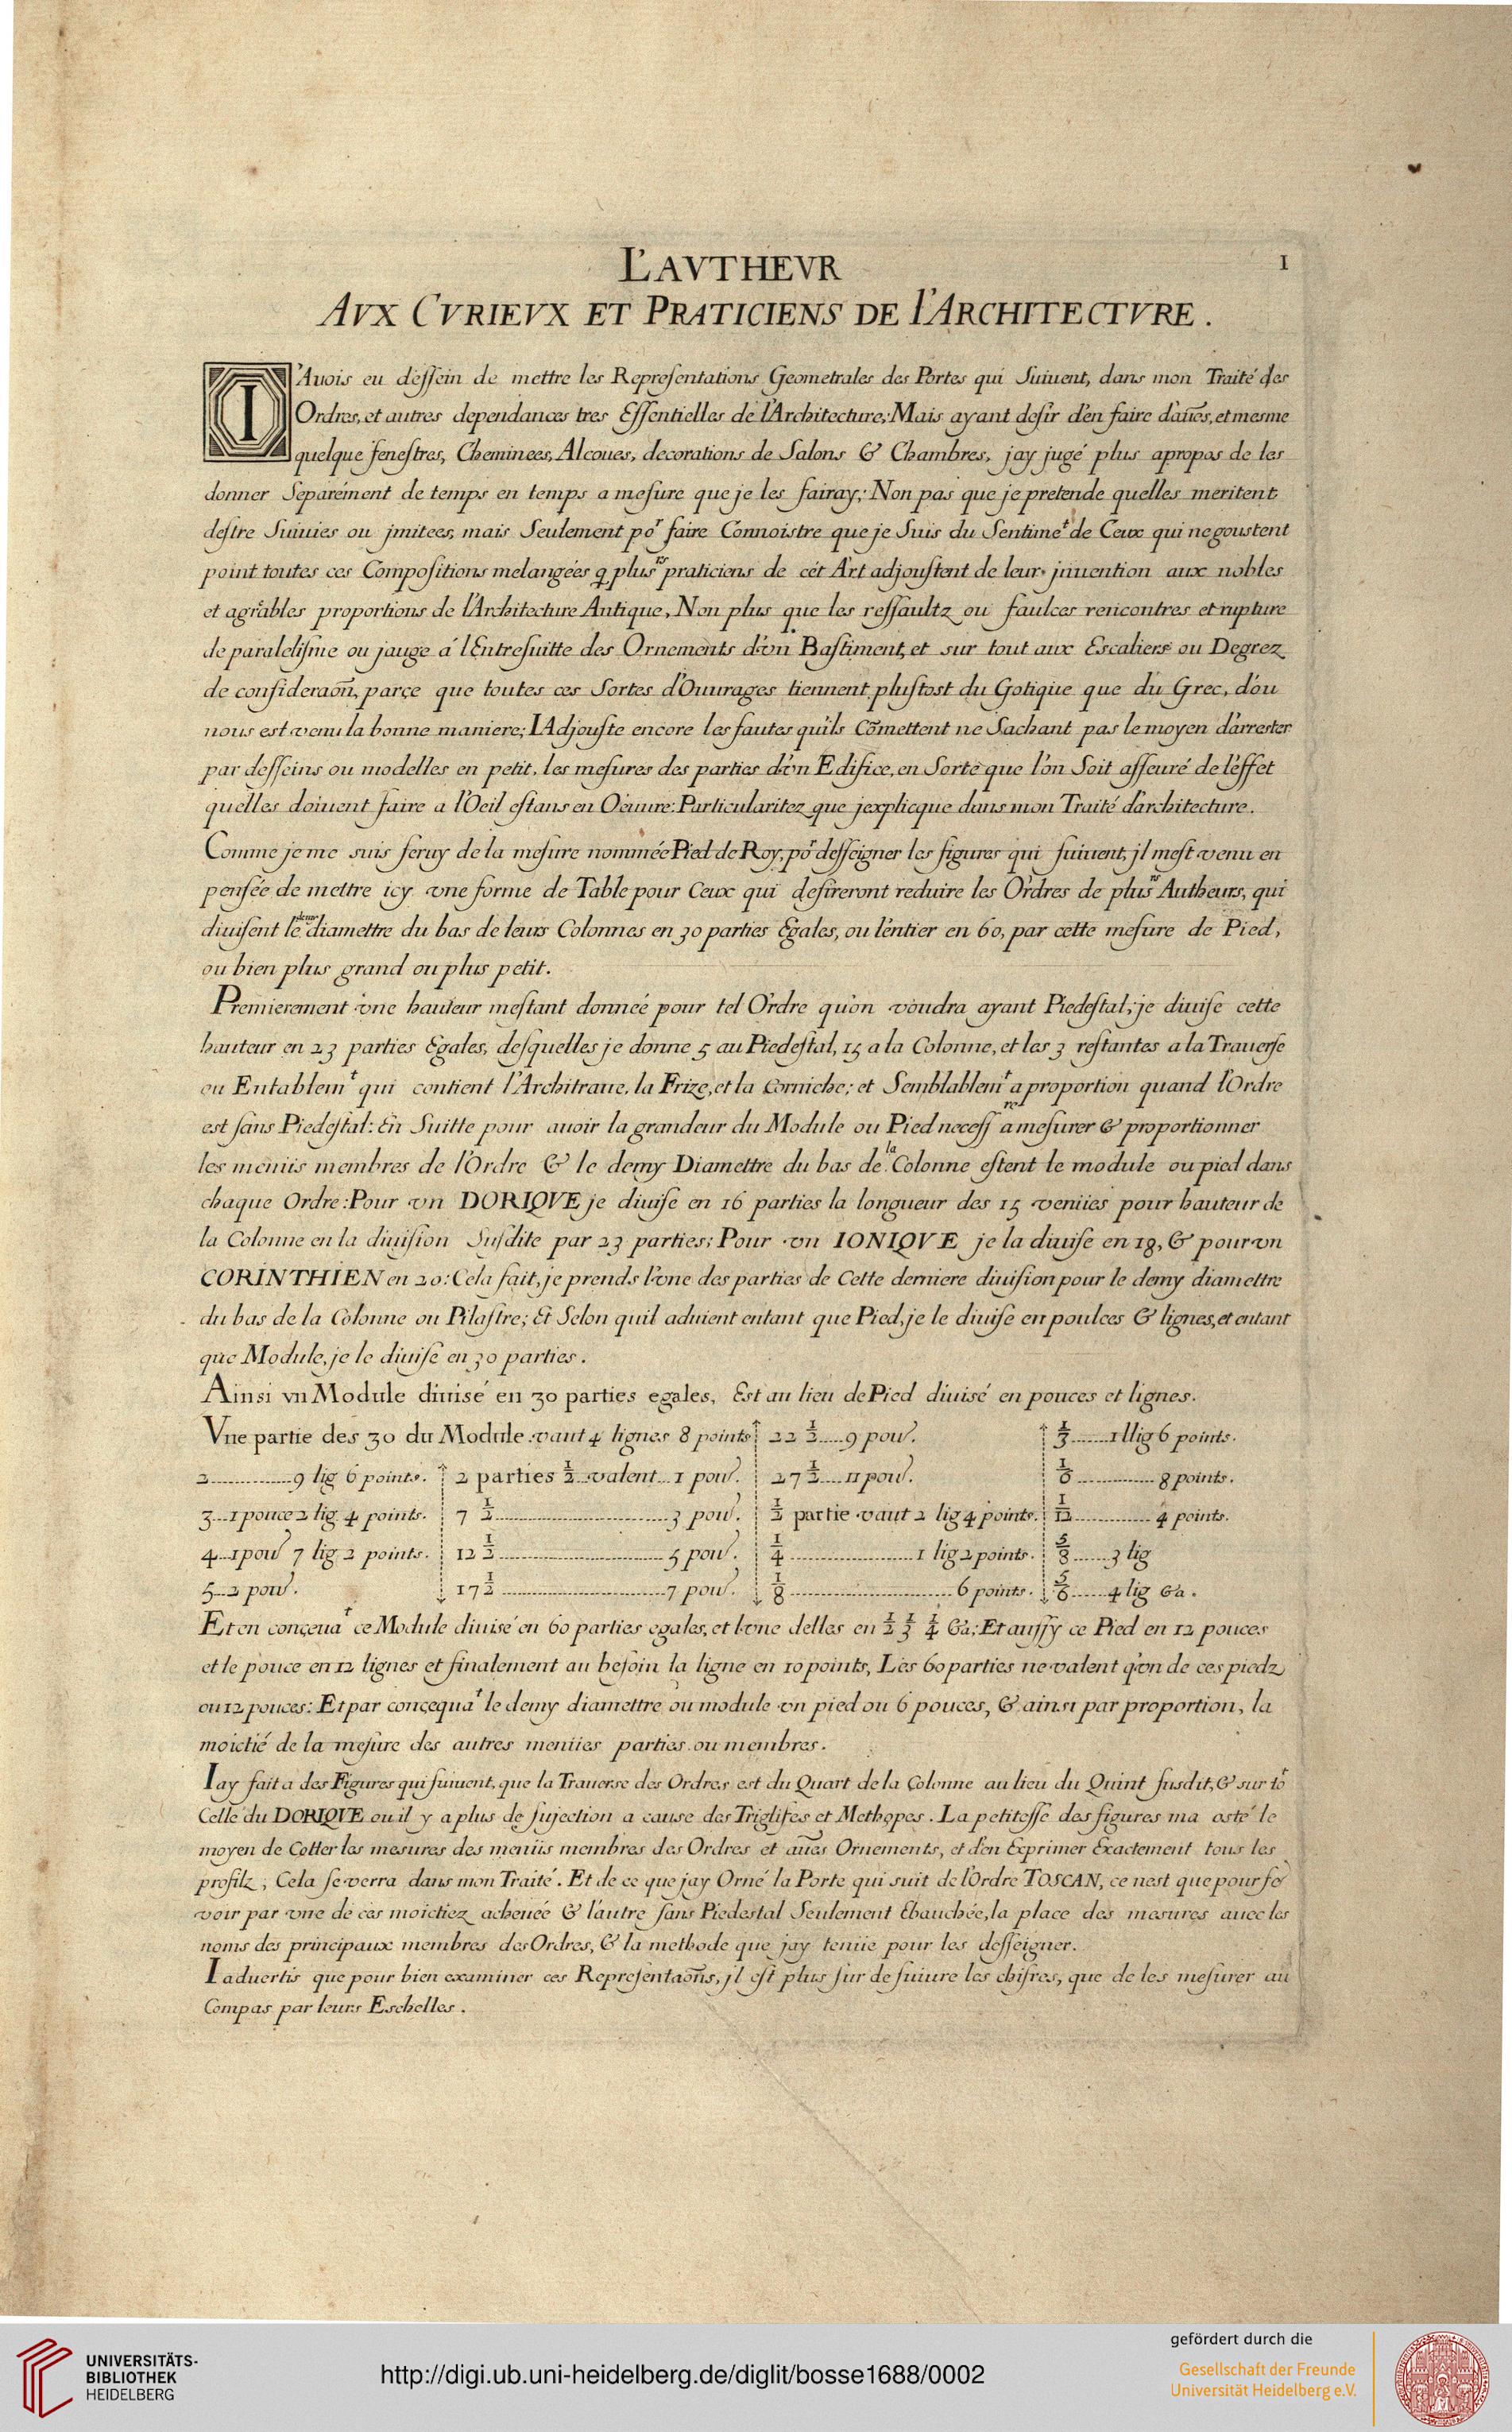 L'AVTHEVR
1
AVX CVRIEVX ET PRATICIENS DE l'ARCHITECTVRE.
I'Auois eu deſſein de mettre les Repreſentations Geometrales des Portes qui Suiuent, dans mon Traité des
Ordres, et autres dependances tres Eſſentielles de l'Architecture; Mais ayant deſir d'en faire d'aũes, et mesme
quelque feneſtres, Cheminees, Alcoues, decorations de Salons & Chambres, jay jugé plus apropos de les
donner Separément de temps en temps a meſure que je les fairay; Non pas que je pretende quelles meritent
deſtre Suiuies ou jmitees, mais Seulement poʳ faire Connoistre que je Suis du Sentimeᵗ de Ceux qui ne goustent
point toutes ces Compoſitions melangées q̃ pluſʳˢ praticiens de cét Art adjouſtent de leur jnuention aux nobles
et agrables proportions de l'Architecture Antique, Non plus que les reſſaultz ou faulces rencontres et rupture
de paraleliſme ou jauge á l'Entreſuitte des Ornements d'vn Baſtiment, et sur tout aux Escaliers ou Degrez
de conſideraoñ, parçe que toutes ces Sortes d'Ouurages tiennent pluſtost du Gotique que du Grec, d'ou
nous est venu la bonne maniere; I'Adjouſte encore les fautes qu'ils Cõmettent ne Sachant pas le moyen d'arrester
par deſſeins ou modelles en petit, les meſures des parties d'vn Edifice, en Sorte que l'on Soit aſſeuré de l'effet
quelles doiuent faire a l'Oeil eſtans en Oeuure: Particularitez que jexplicque dans mon Traité d'architecture.
Comme je me suis ſeruy de la meſure nommée Pied de Roy, poʳ deſſeigner les figures qui ſuiuent, jl meſt venu en
penſée de mettre icy vne forme de Table pour Ceux qui deſireront reduire les Ordres de pluſʳˢ Autheurs, qui
diuiſent le demy diamettre du bas de leurs Colonnes en 30 parties Egales, ou l'entier en 60, par cette meſure de Pied,
ou bien plus grand ou plus petit.
Premierement vne hauteur meſtant donnée pour tel Ordre qu'on voudra ayant Piedeſtal; je diuiſe cette
hauteur en 23 parties Egales, deſquelles je donne 5 au Piedeſtal, 15 a la Colonne, et les 3 reſtantes a la Trauerſe
ou Entablemᵗ qui contient l'Architraue, la Frize, et la Corniche; et Semblablemᵗ a proportion quand l'Ordre
est ſans Piedeſtal: En Suitte pour auoir la grandeur du Module ou Pied neceſſʳᵉ a meſurer & proportionner
les menüs membres de l'Ordre & le demy Diamettre du bas de la Colonne eſtent le module ou pied dans
chaque Ordre: Pour vn DORIQVE je diuiſe en 16 parties la longueur des 15 venües pour hauteur de
la Colonne en la diuiſion Suſdite par 23 parties; Pour vn IONIQVE je la diuiſe en 18, & pour vn
CORINTHIEN en 20: Cela fait, je prends l'vne des parties de Cette derniere diuiſion pour le demy diamettre
du bas de la Colonne ou Pilaſtre; Et Selon quil aduient entant que Pied, je le diuiſe en poulces & lignes, et entant
que Module, je le diuiſe en 30 parties.
Ainsi vn Module diuisé en 30 parties egales, Est au lieu de Pied diuisé en pouces et lignes.
Vne partie des 30 du Module vaut 4 lignes 8 points 22 ½ ..... 9 pou. ⅓ ....... 1 llig 6 points.
2 ............. 9 lig 6 points. 2 parties ½ valent ... 1 pou. 27 ½ .... 11 pou. ⅙ ............. 8 points.
3 ... 1 pouce 2 lig 4 points. 7 ½ ............................ 3 pou. ½ partie vaut 2 lig 4 points. 1/12 ............. 4 points.
4 ... 1 pou 7 lig 2 points. 12 ½ ........................... 5 pou. ¼ .................... 1 lig 2 points. ⅝ ...... 3 lig
5 ... 2 pou. 17 ½ ........................... 7 pou. ⅛ .......................... 6 points. ⅚ ...... 4 lig &a.
Et en conçeuaᵗ ce Module diuisé en 60 parties egales, et l'vne delles en ½ ⅓ ¼ &a: Et auſſy ce Pied en 12 pouces
et le pouce en 12 lignes et finalement au beſoin la ligne en 10 points, Les 60 parties ne valent q'vn de ces piedz
ou 12 pouces: Et par conçequaᵗ le demy diamettre ou module vn pied ou 6 pouces, & ainsi par proportion, la
moictié de la meſure des autres menües parties ou membres.
Iay fait a des Figures qui ſuiuent, que la Trauerse des Ordres est du Quart de la Colonne au lieu du Quint ſusdit, & sur toᵗ
Celle du DORIQVE ou il y a plus de ſujection a cause des Triglifes et Methopes. La petiteſſe des figures ma osté le
moyen de Cotter les mesures des menüs membres des Ordres et aũes Ornements, et d'en Exprimer Exactement tous les
profilz, Cela ſe verra dans mon Traité. Et de ce que jay Orné la Porte qui suit de l'Ordre TOSCAN, ce nest que pour fe
voir par vne de ces moictiez acheuée & l'autre ſans Piedestal Seulement Ebauchée, la place des mesures auec les
noms des principaux membres des Ordres, & la methode que jay tenüe pour les deſſeigner.
I aduertis que pour bien examiner ces Repreſentaoñs, jl eſt plus ſur de ſuiure les chifres, que de les meſurer au
Compas par leurs Eschelles.
UNIVERSITÄTS-
BIBLIOTHEK
HEIDELBERG
http://digi.ub.uni-heidelberg.de/diglit/bosse1688/0002
gefördert durch die
Gesellschaft der Freunde
Universität Heidelberg e.V.